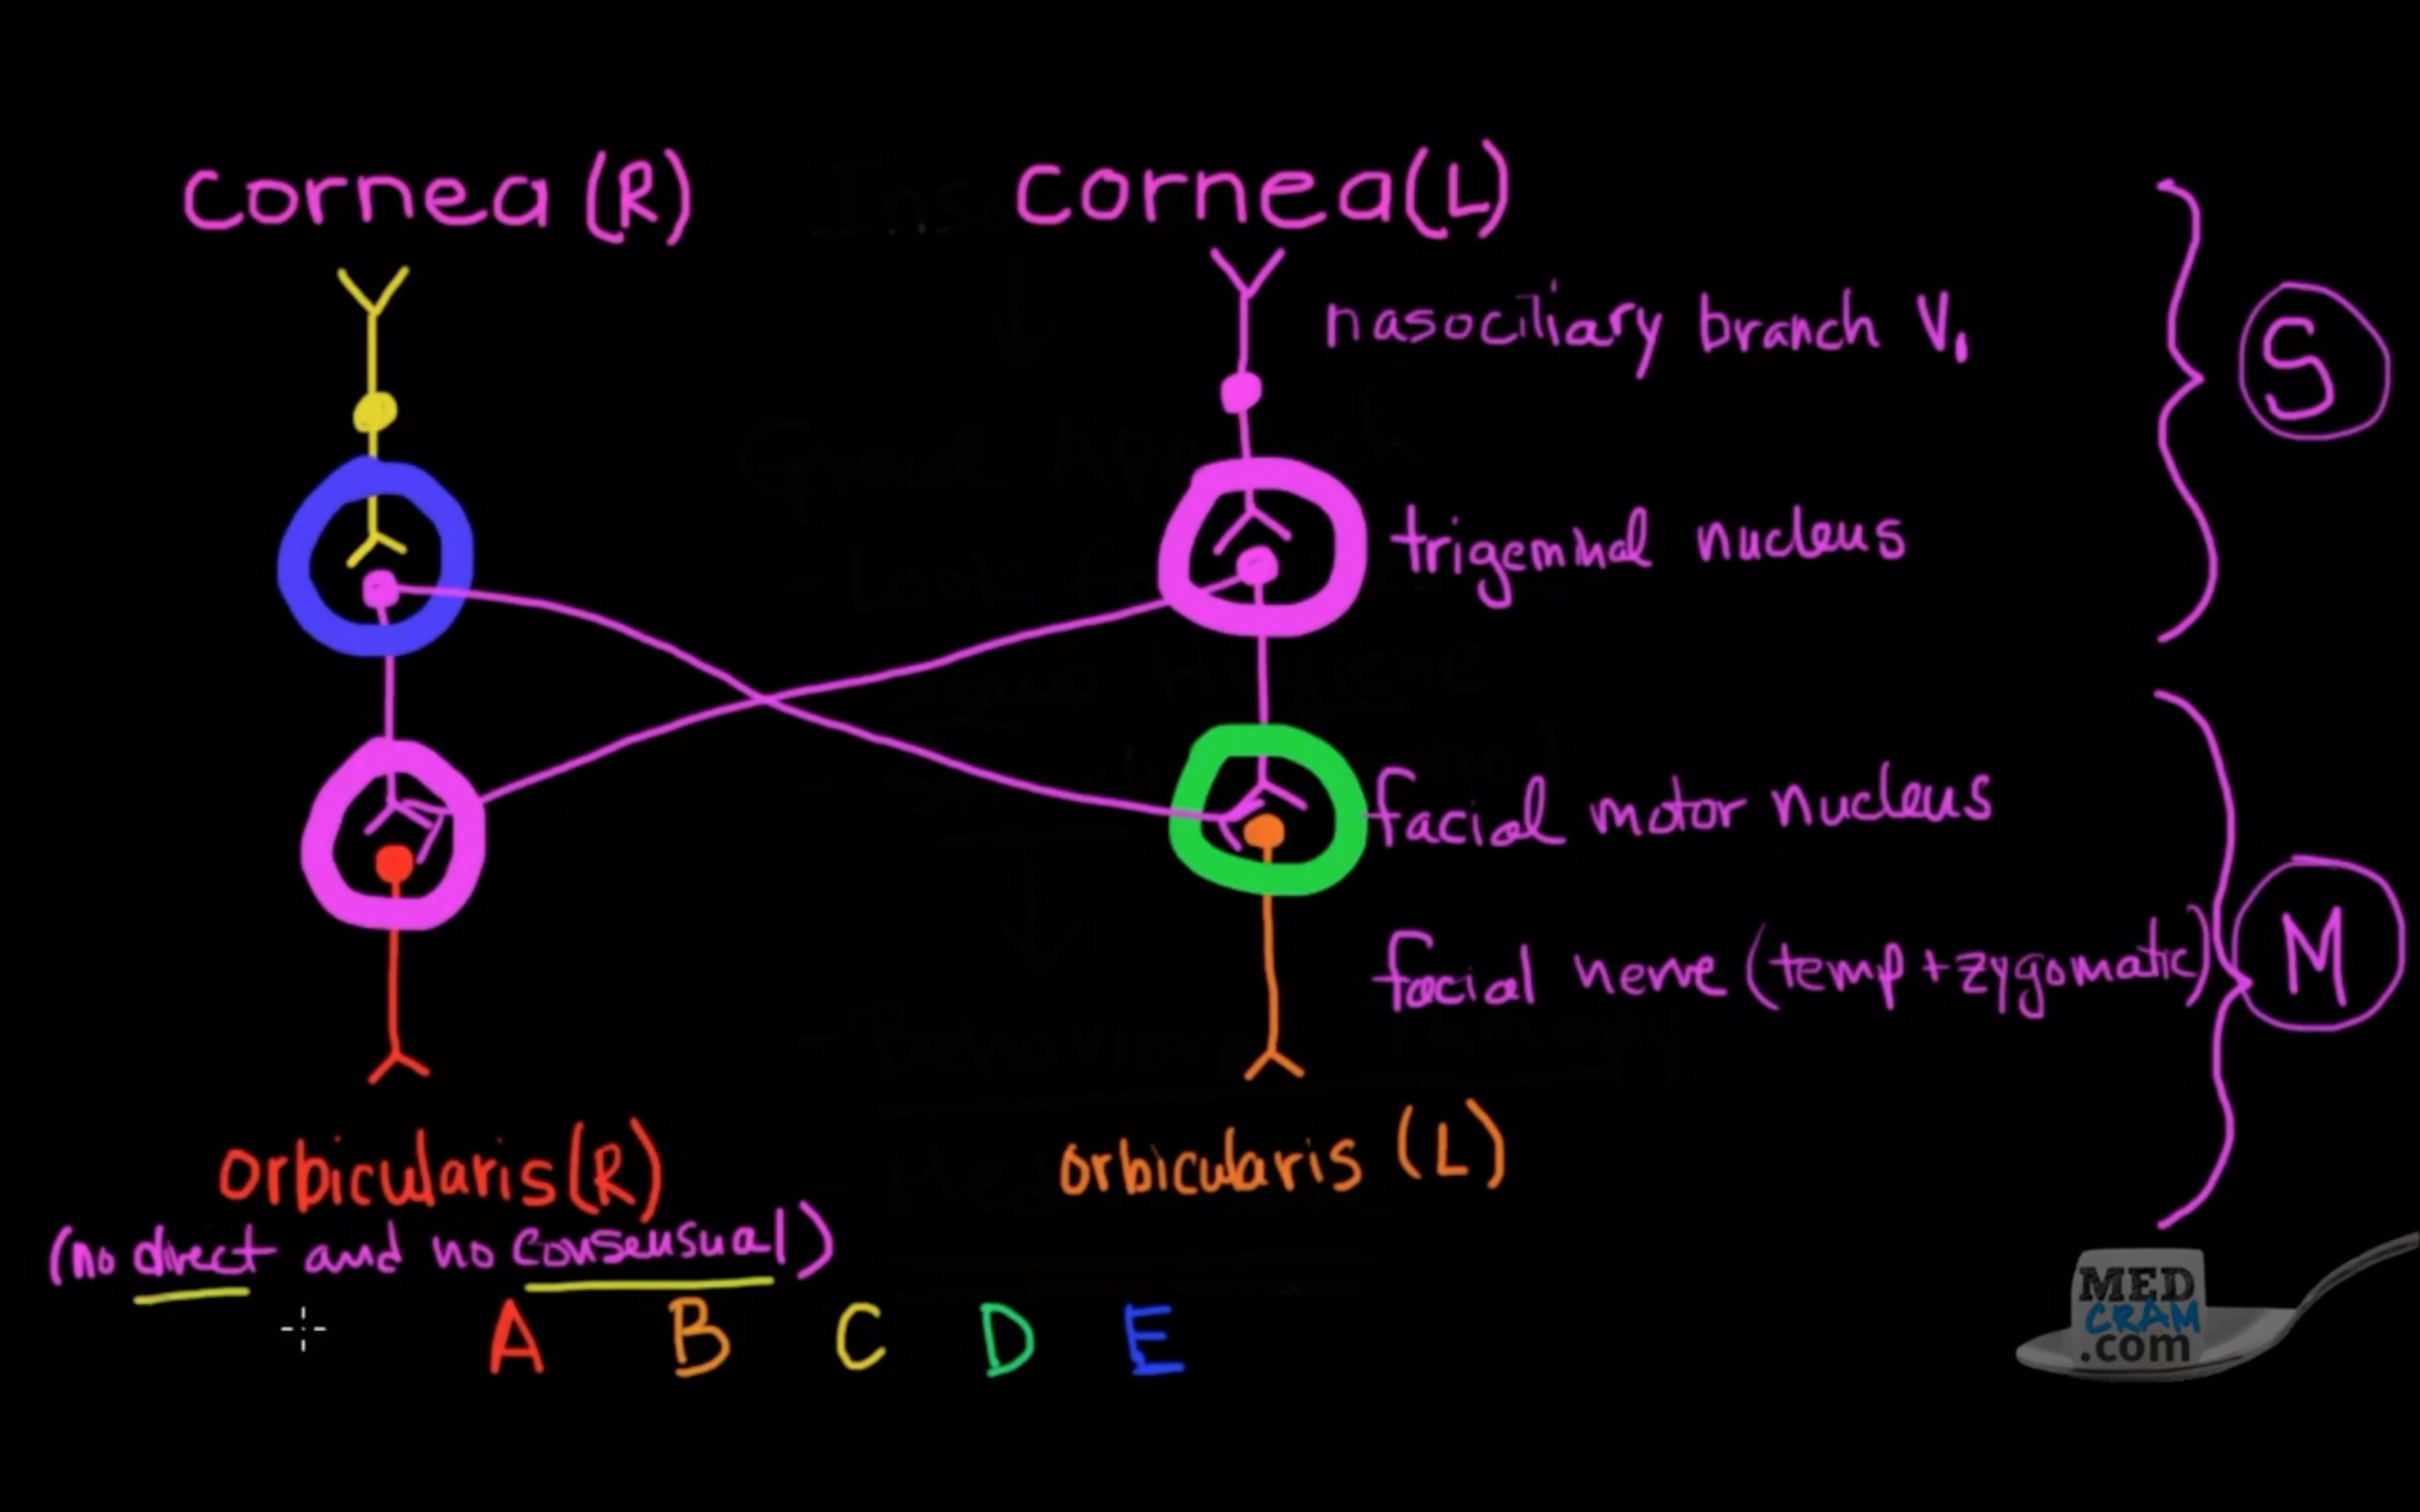 cornea (R)
cornea (L)
nasociliary branch V₁
S
trigeminal nucleus
facial motor nucleus
facial nerve (temp + zygomatic)
M
orbicularis (R)
orbicularis (L)
(no direct and no consensual)
A B C D E
MED
CRAM
.com